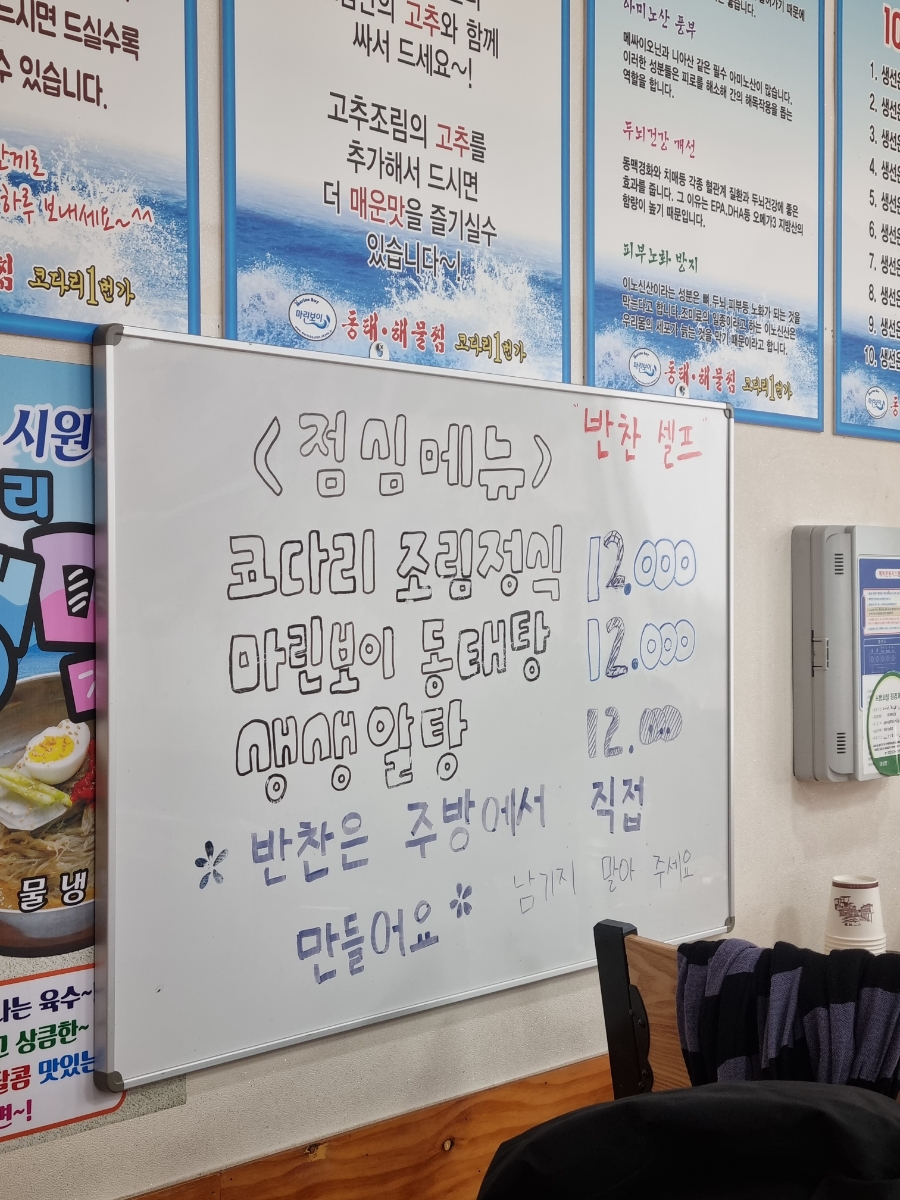 드시면 드실수록
수 있습니다.
하루 보내세요~^^
코다리1번가
고추와 함께
싸서 드세요~!
고추조림의 고추를
추가해서 드시면
더 매운맛을 즐기실수
있습니다~!
마린보이
동태·해물찜 코다리1번가
아미노산 풍부
메싸이오닌과 니아산 같은 필수 아미노산이 많습니다.
이러한 성분들은 피로를 해소해 간의 해독작용을 돕는
역할을 합니다.
두뇌건강 개선
동맥경화와 치매등 각종 혈관계 질환과 두뇌건강에 좋은
효과를 줍니다. 그 이유는 EPA,DHA등 오메가3 지방산의
함량이 높기 때문입니다.
피부노화 방지
이노신산이라는 성분은 뼈,두뇌,피부등 노화가 되는 것을
막는다고 합니다.조미료의 일종이라고 하는 이노신산은
우리몸의 세포가 늙는 것을 막기 때문이라고 합니다.
마린보이
동태·해물찜 코다리1번가
10
1. 생선
2. 생선
3. 생선
4. 생선
5. 생선
6. 생선
7. 생선
8. 생선
9. 생선
10. 생선
시원
리
물냉
나는 육수~
고 상큼한~
달콤 맛있는
면~!
<점심메뉴> "반찬 셀프"
코다리 조림정식 12.000
마린보이 동태탕 12.000
생생알탕 12.000
* 반찬은 주방에서 직접
만들어요 * 남기지 말아 주세요